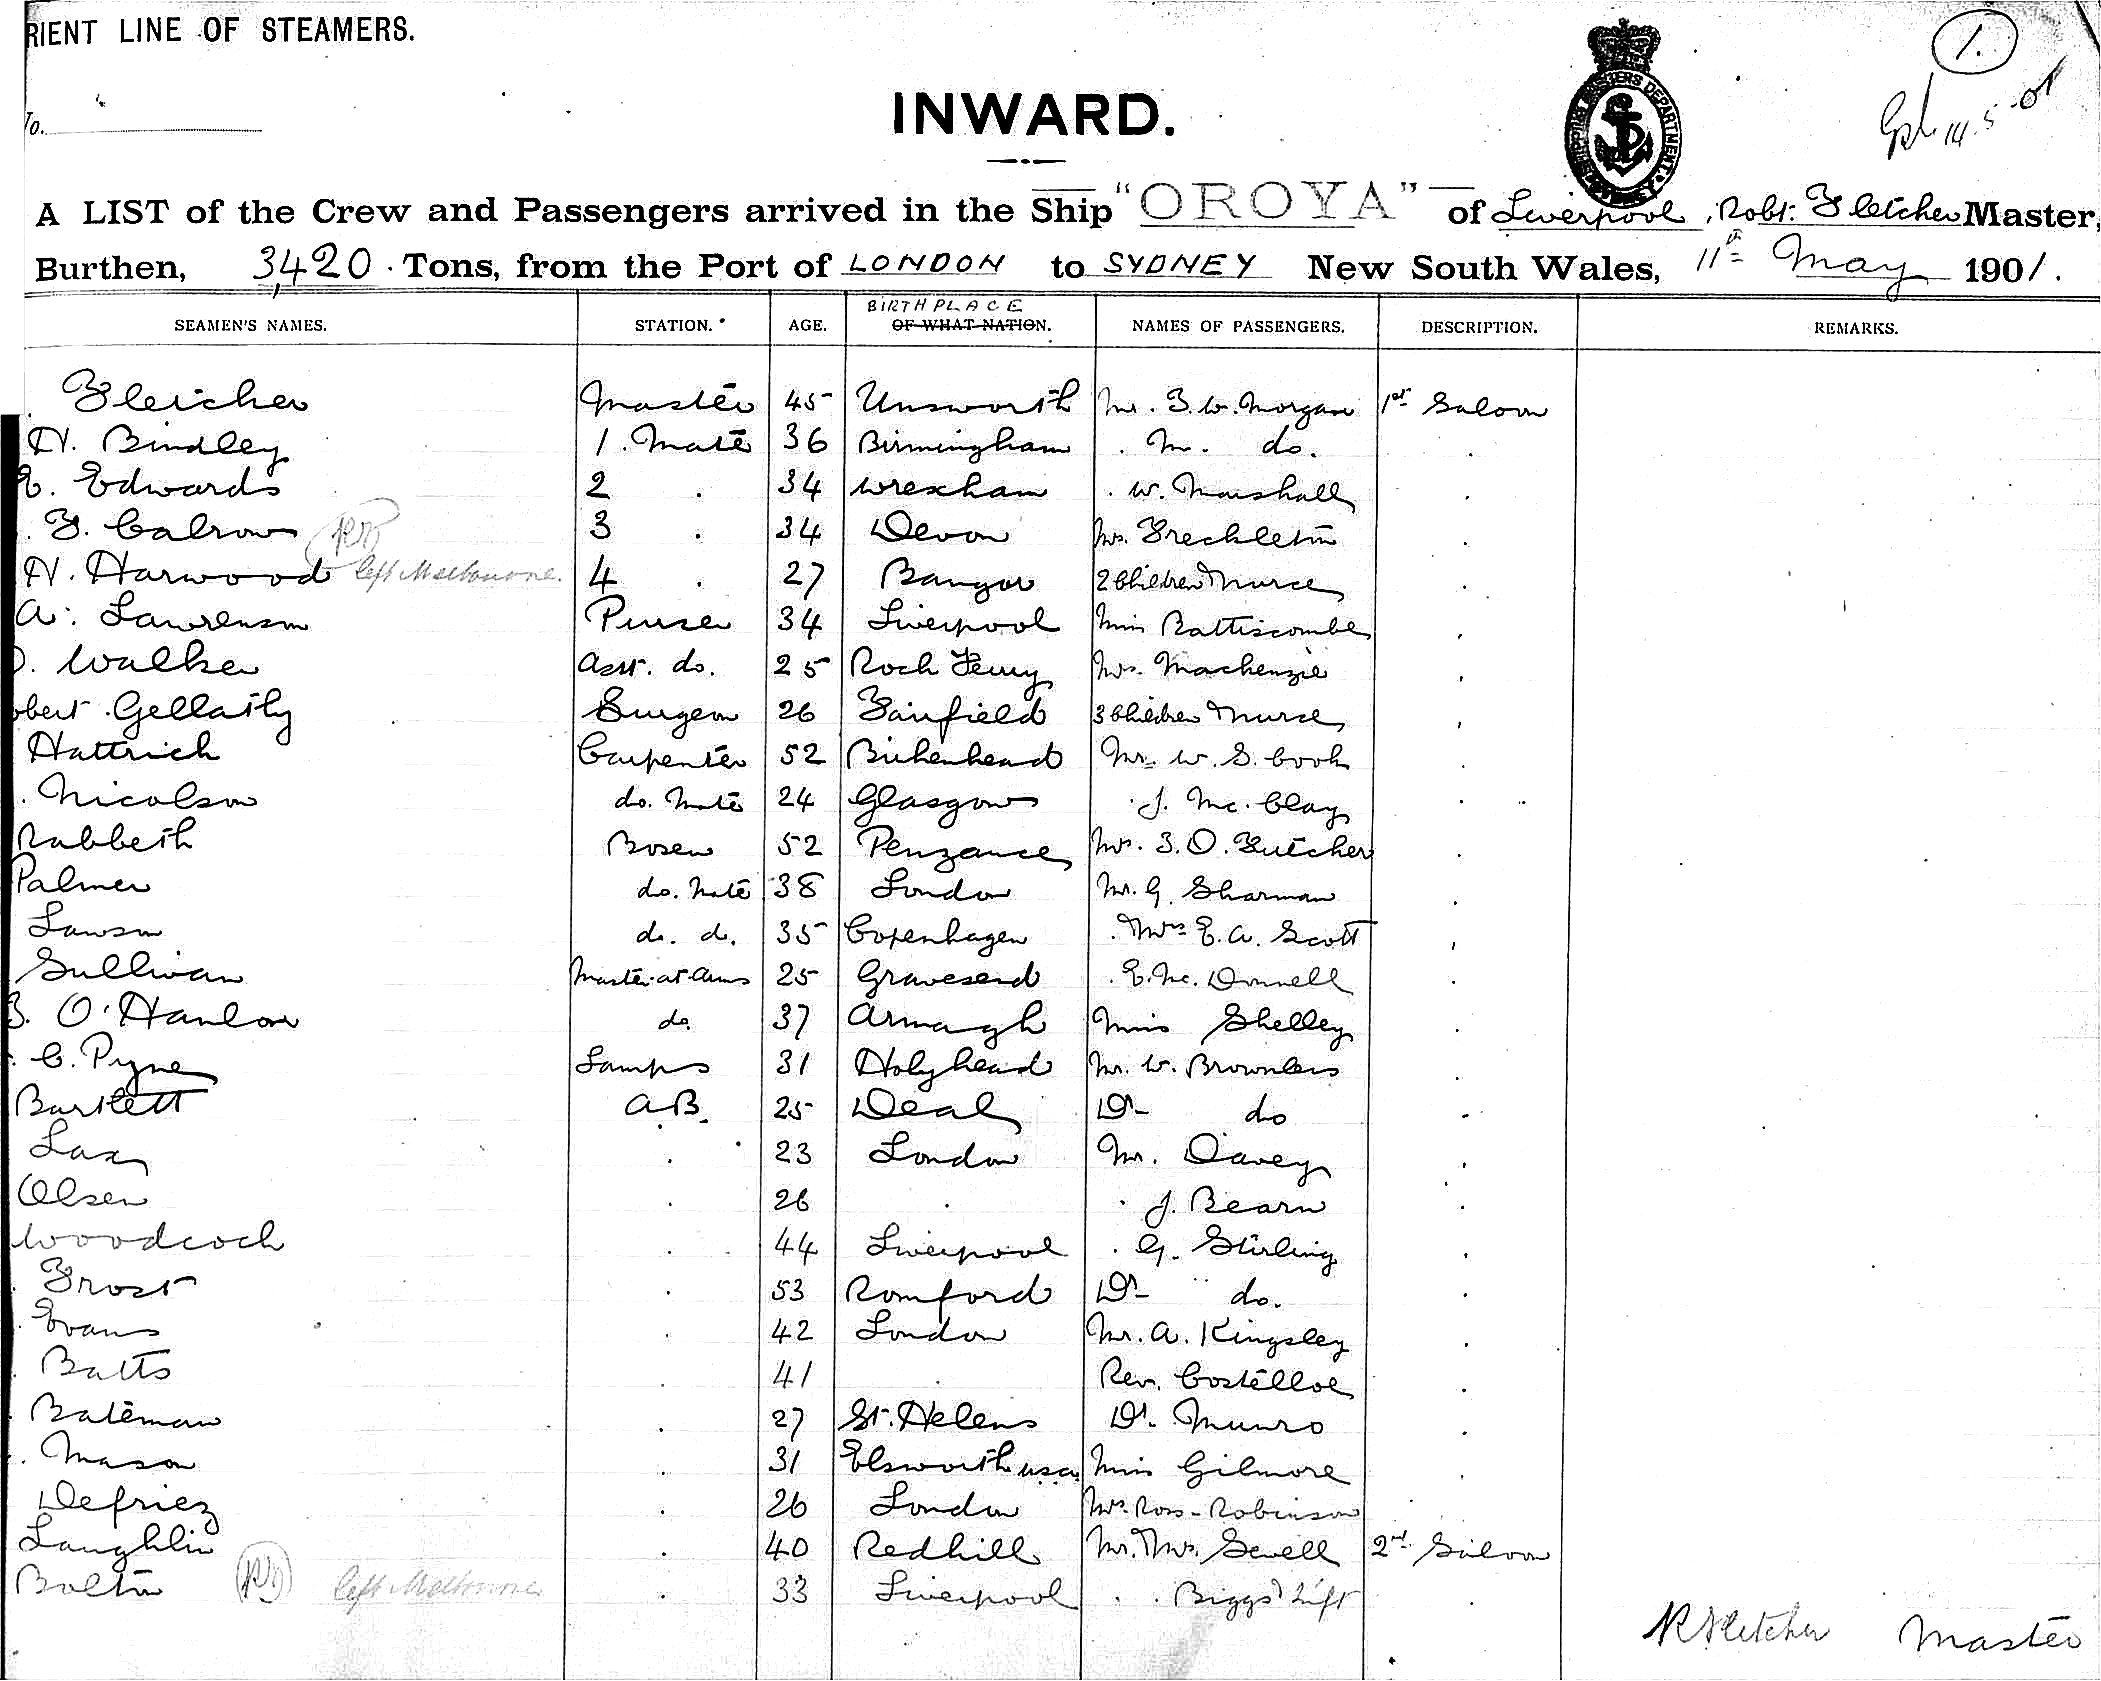 RIENT LINE OF STEAMERS.
1.
To.
14.5.01
INWARD.
A LIST of the Crew and Passengers arrived in the Ship "OROYA" of Liverpool, Robt. Fletcher Master,
Burthen, 3,420 Tons, from the Port of LONDON to SYDNEY New South Wales, 11th May 1901.
BIRTHPLACE
SEAMEN'S NAMES. STATION. AGE. OF WHAT NATION. NAMES OF PASSENGERS. DESCRIPTION. REMARKS.
Fletcher Master 45 Unsworth Mr. F. W. Morgan 1st Saloon
H. Bindley 1. Mate 36 Birmingham . M. do. .
E. Edwards 2 . 34 Wrexham . W. Marshall .
. F. Calrow 3 . 34 Devon Mrs. Freckleton .
H. Harwood left Melbourne. 4 . 27 Bangor 2 Children & Nurse .
A. Lawrenson Purser 34 Liverpool Miss Battiscombe .
. Walker Asst. do. 25 Rock Ferry Mrs. Mackenzie .
obert Gellatly Surgeon 26 Fairfield 3 Children & Nurse .
Hattrick Carpenter 52 Birkenhead Mr. W. S. Cook .
. Nicolson do. Mate 24 Glasgow . J. Mc. Clay .
Rabbeth Bosen 52 Penzance Mrs. F. O. Futcher .
Palmer do. Mate 38 London Mr. G. Sharman .
Lawson do. do. 35 Copenhagen . Mrs E. A. Scott .
Sullivan Master-at-Arms 25 Gravesend . E. Mc. Donnell .
F. O'Hanlon do. 37 Armagh Miss Shelley .
. C. Pyne Lamps 31 Holyhead Mr. W. Brownless .
Bartlett A.B. 25 Deal Dr do .
Lax . 23 London Mr. Davey .
Olsen . 26 . . J. Bearn .
Woodcock . 44 Liverpool . G. Stirling .
. Frost . 53 Romford Dr do. .
. Evans . 42 London Mr. A. Kingsley .
. Batts . 41 . Rev. Costelloe .
. Bateman . 27 St. Helens Dr. Munro .
. Mason . 31 Elsworth USA Miss Gilmore .
Defriez . 26 London Mrs. Ross-Robinson .
Laughlin . 40 Redhill Mr. & Mrs. Sewell 2nd Saloon
Bolton left Melbourne . 33 Liverpool . . Biggs .
R Fletcher Master